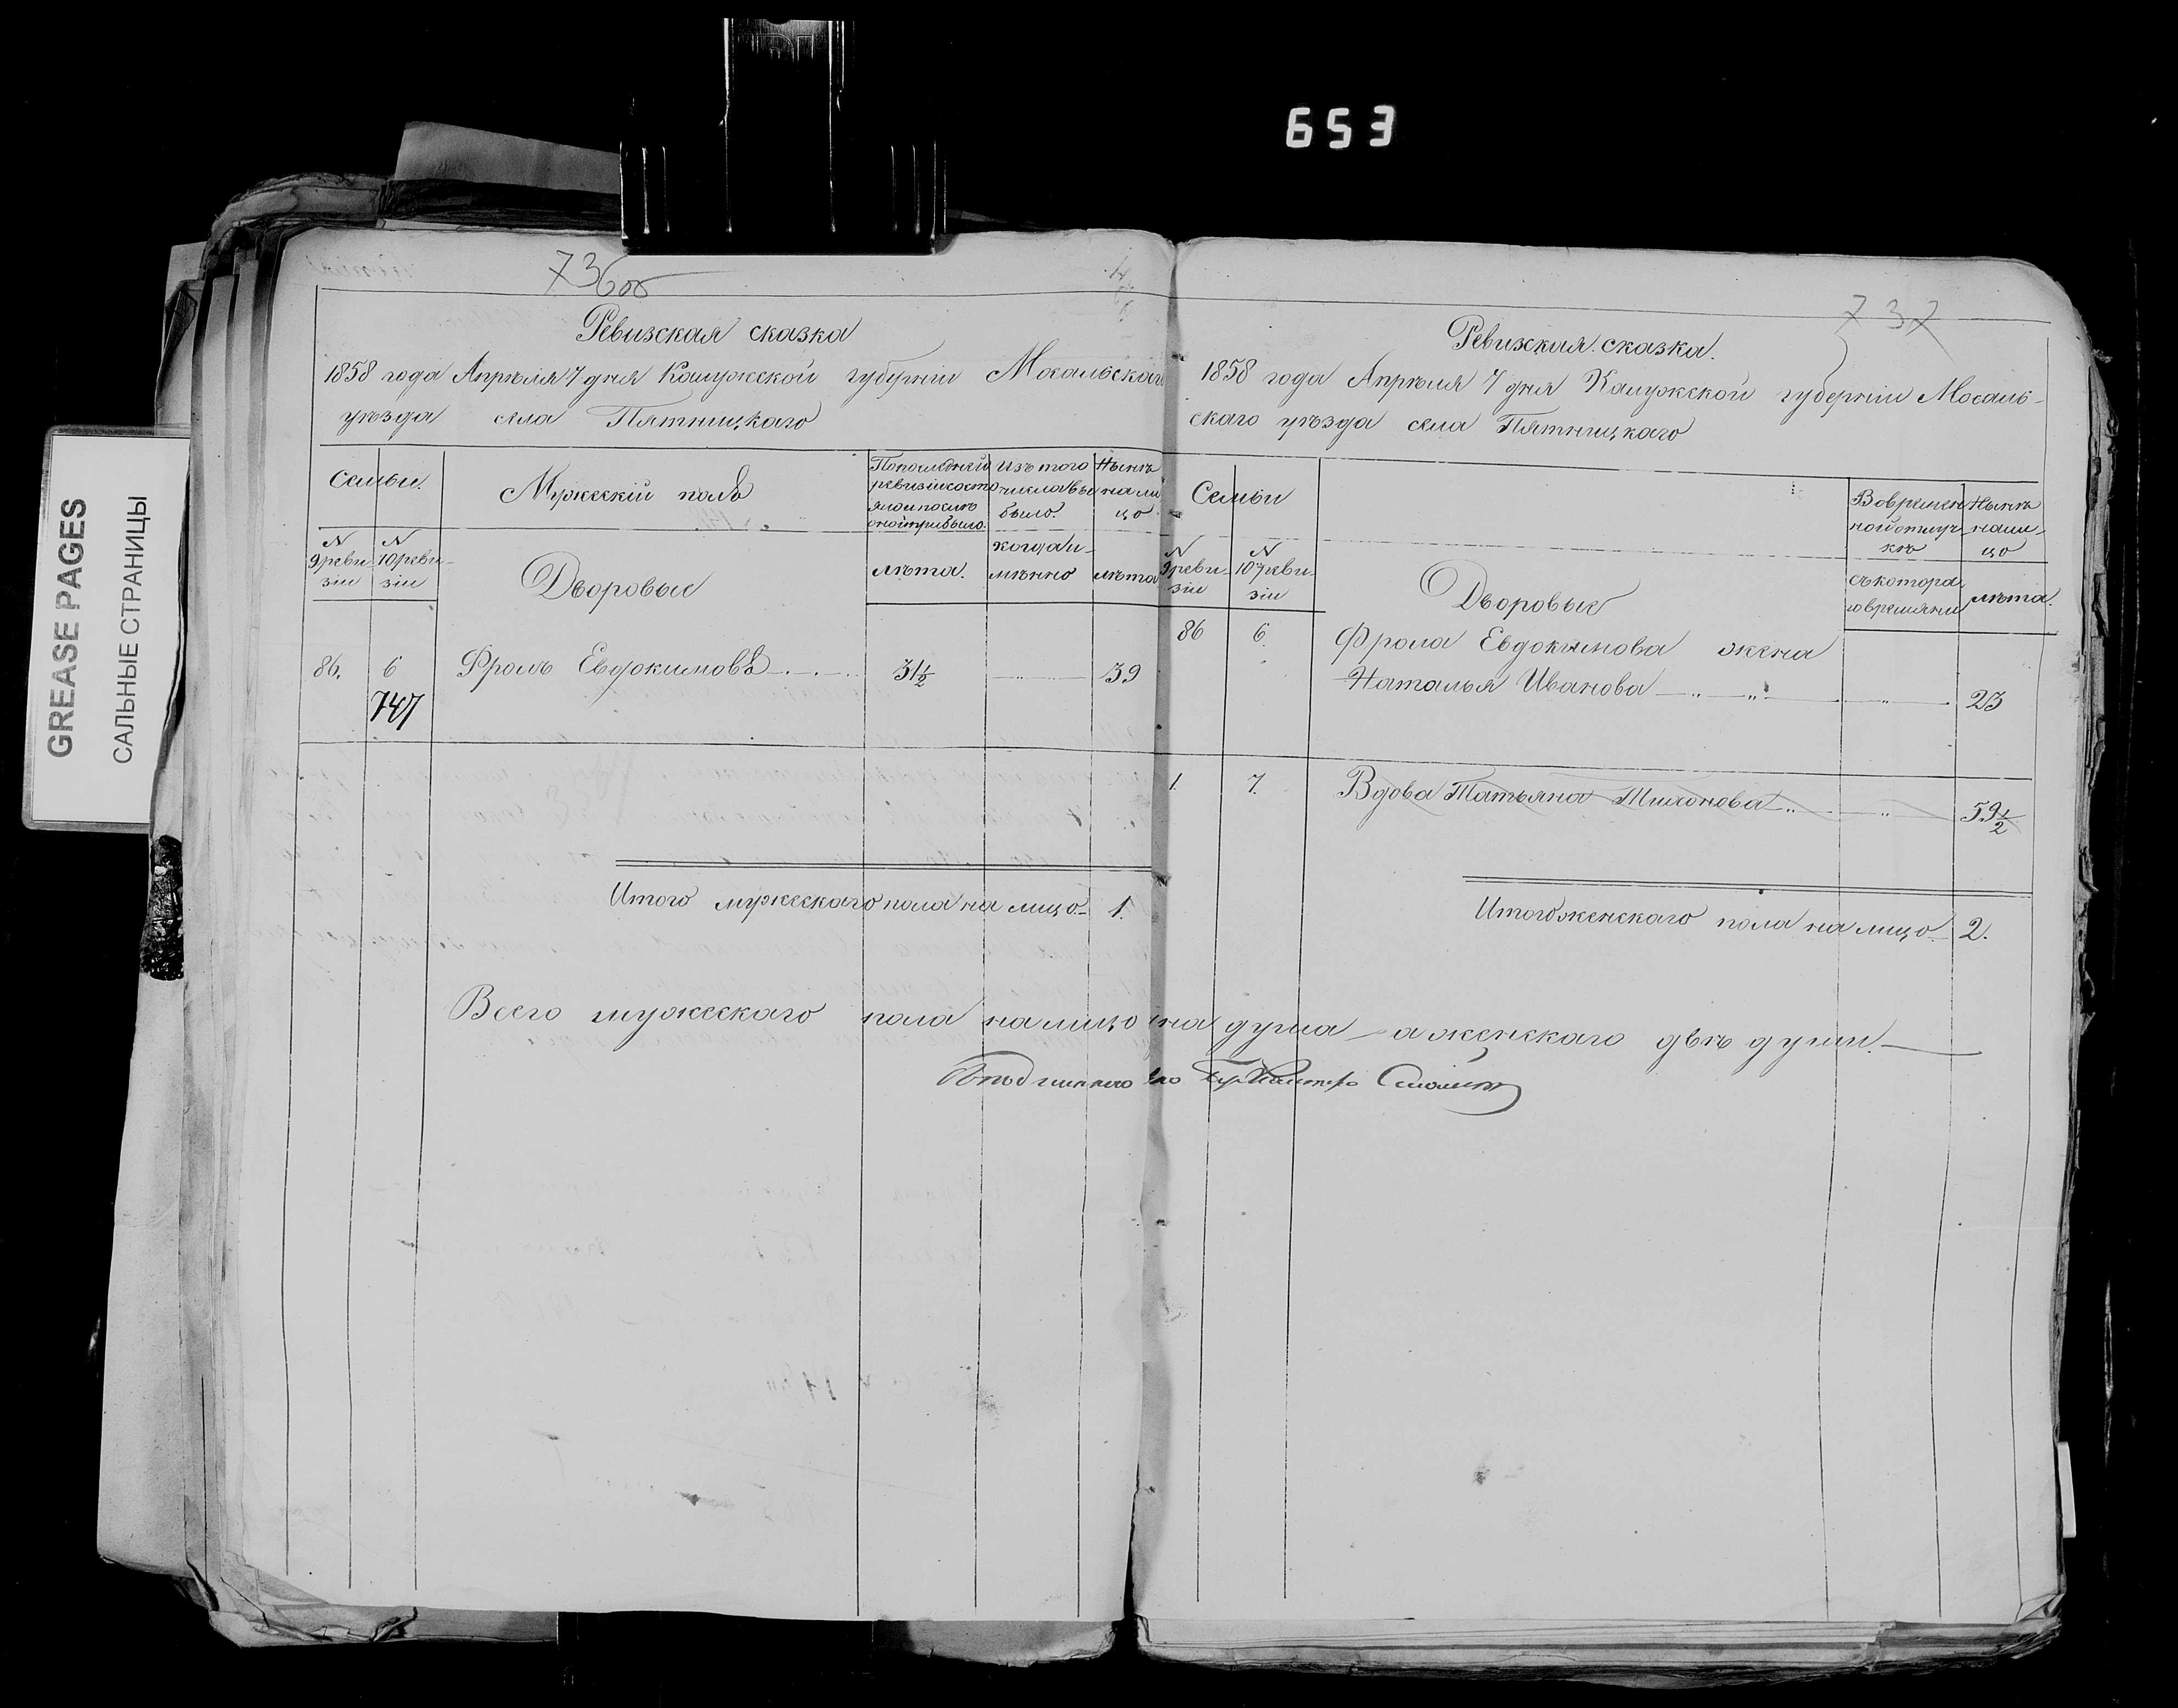 653
GREASE PAGES
САЛЬНЫЕ СТРАНИЦЫ
736об
Ревизская сказка
1858 года Апрѣля 7 дня Калужской губерніи Мосальскаго
уѣзда села Пятницкаго
Семьи.
Мужескій полъ
По послѣдней ревизіи состояло и послѣ оной прибыло.
Изъ того числа выбыло.
Нынѣ на лицо
N 9 ревизіи
N 10 ревизіи
Дворовые
лѣта.
когда именно
лѣта
86. 6 Фролъ Евдокимовъ 31½ 39
747
Итого мужескаго пола на лицо 1.
737
Ревизская сказка.
1858 года Апрѣля 7 дня Калужской губерніи Мосаль-
скаго уѣзда села Пятницкаго
Семьи
Во временной отлучкѣ
Нынѣ на лицо
N 9 реви-зіи
N 10 реви-зіи
Дворовые
съ котора-го времяни
лѣта.
86 6. Фрола Евдокимова жена
Наталья Иванова 23
1. 7. Вдова Татьяна 59½
Итого женскаго пола на лицо 2.
Всего мужескаго пола на лицо душа а женскаго двѣ души.